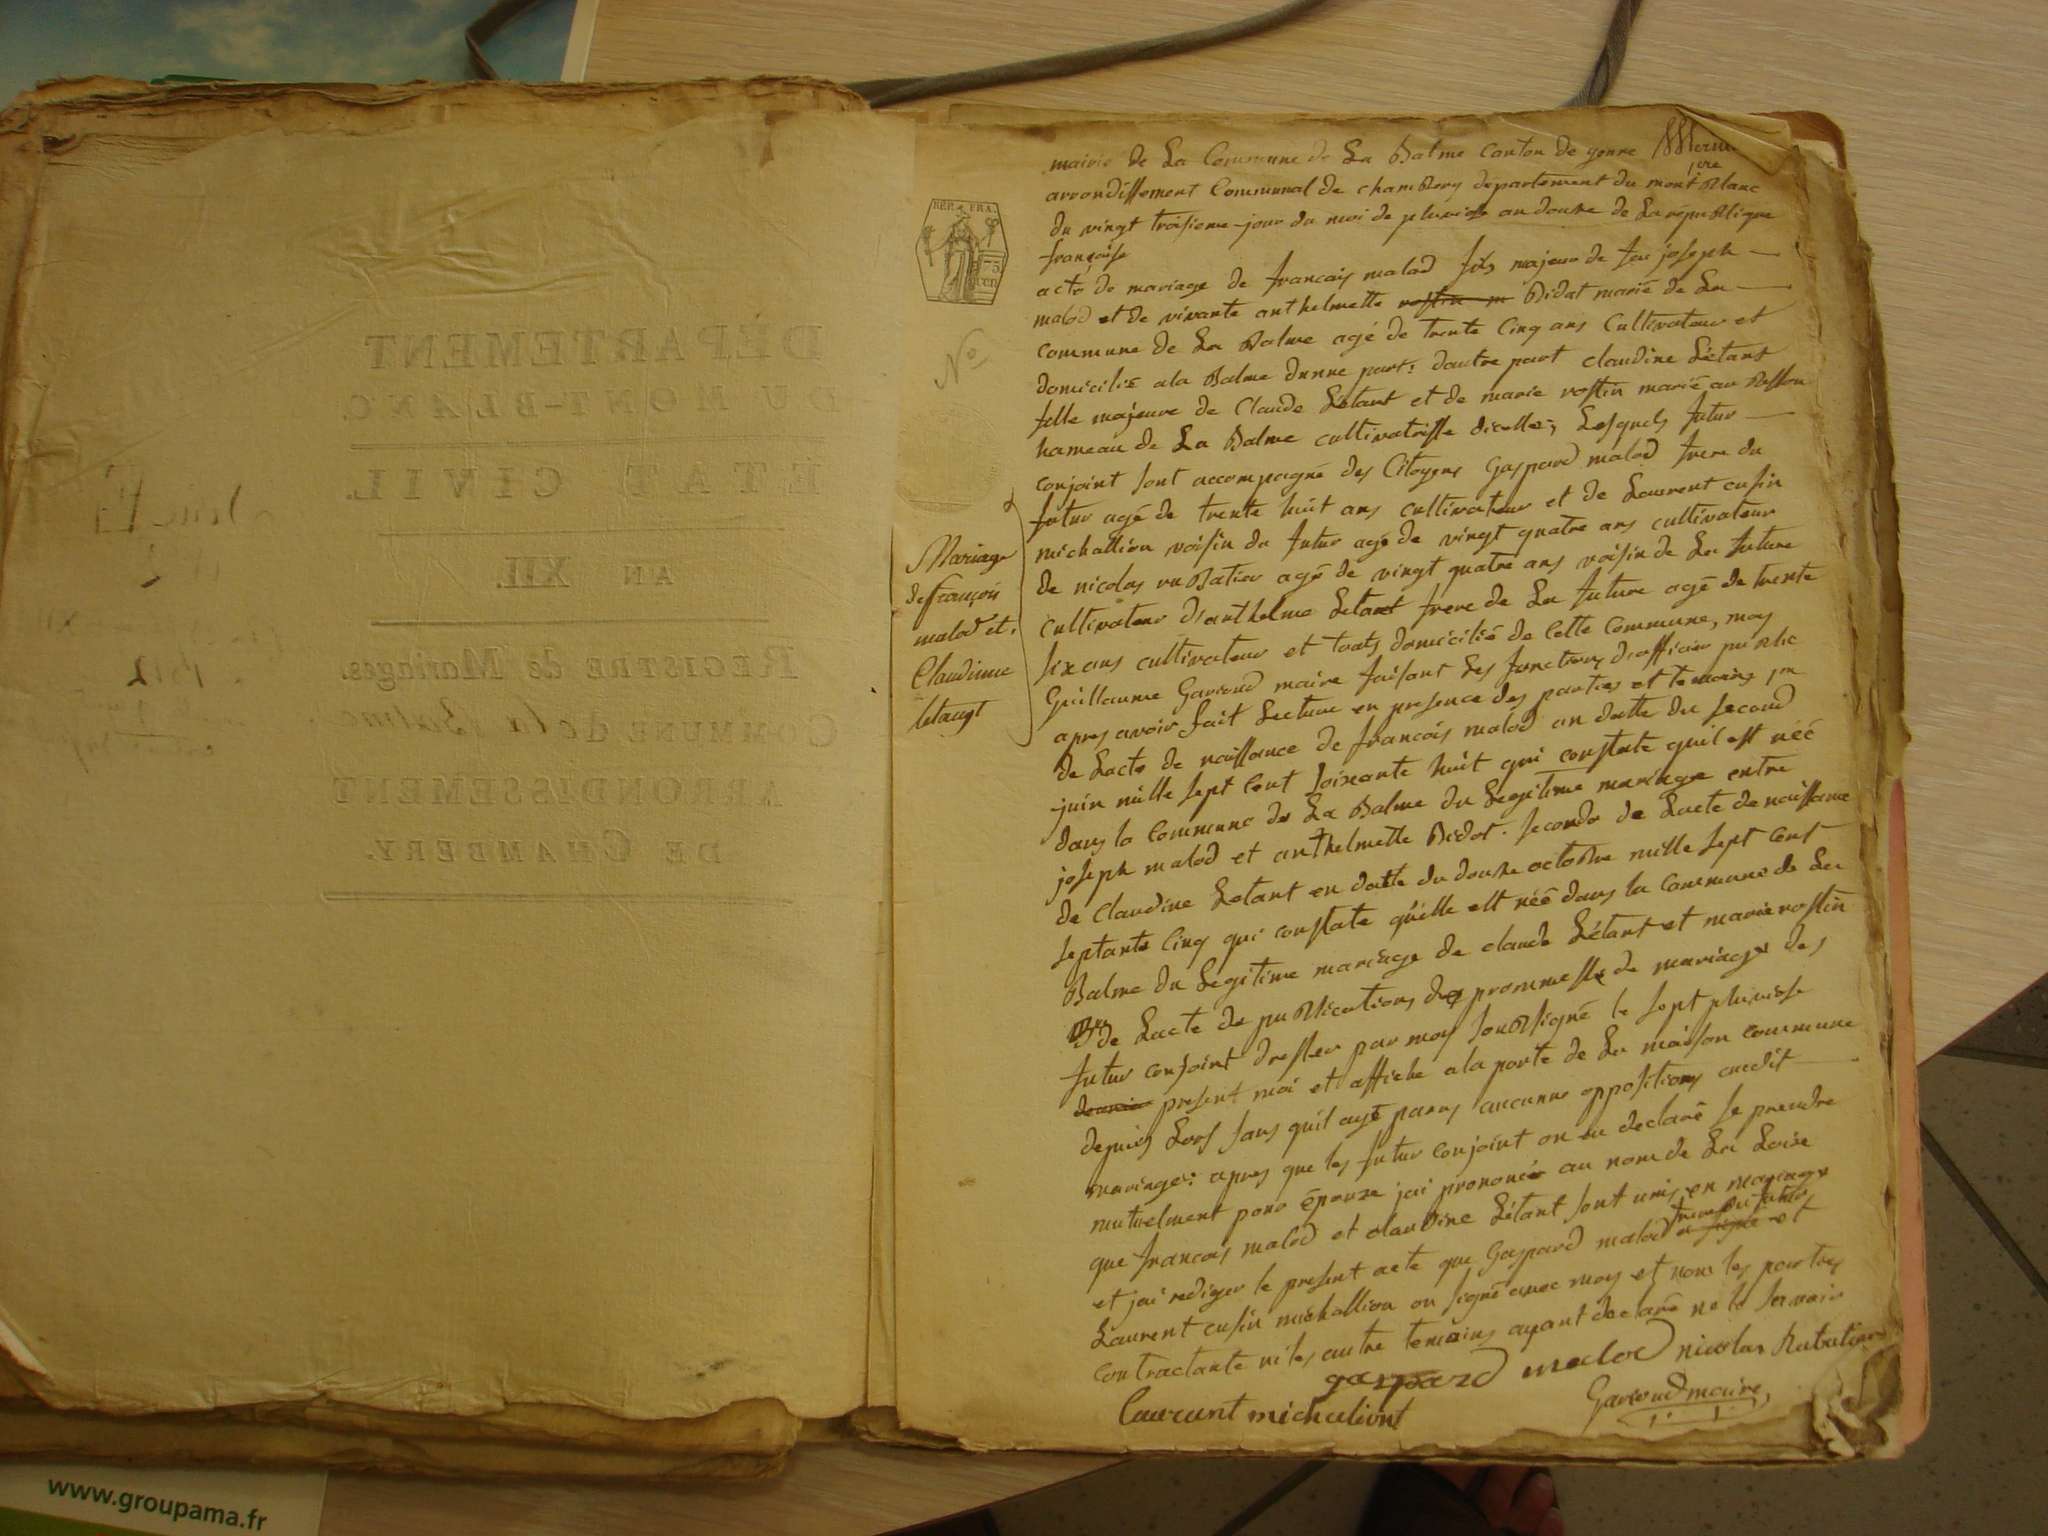 DÉPARTEMENT
DU MONT-BLANC.
ÉTAT CIVIL.
AN XII.
REGISTRE de Mariages.
COMMUNE de la Balme
ARRONDISSEMENT
DE CHAMBERY.
REP. FRA.
75
No
Mariage
de françois
malod et
Claudinne
letangt
mairie de La Commune de La Balme canton de yenne
arrondissement Communal de chambery departement du mont Blanc
du vingt troisieme jour du moi de pluviose an douse de La republique
françoise
acte de mariage de francais malod fils majeur de feu joseph
malod et de vivante anthelmette Bidat marié de La
commune de La Balme agé de trente Cinq ans Cultivateur et
domicilié a la Balme dunne part: dautre part claudine Létant
fille majeure de Claude Létant et de marie rostin marié au
hameau de La Balme cultivatrisse dicelle; Lesquels futur
conjoint sont accompagné des Citoyens Gaspard malod frere du
futur agé de trente huit ans cultivateur et de Laurent cusin
michallion voisin du futur agé de vingt quatre ans cultivateur
de nicolas rubatier agé de vingt quatre ans voisin de La future
cultivateur d'anthelme Letant frere de La future agé de trente
six ans cultivateur et touts domicilié de Cette Commune, moy
Guillaume Garioud maire faisant les fonctions d'officier public
apres avoir fait Lecture en presence des parties et temoins
de Lacte de naissance de françois malod an datte du second
juin mille sept Cent soixante huit qui constate quil est néé
dans la commune de La Balme du Legitime mariage entre
joseph malod et anthelmette Bidot. secondo de Lacte de naissance
de Claudine Letant en datte du douse octobre mille sept Cent
septante Cinq qui constate quelle est néé dans la Commune de La
Balme du Legitime mariage de claude Létant et marie rostin
de Lacte de publications des prommesse de mariage des
futur conjoint dresser par moy soubsigné le sept pluviose
present moi et affiche a la porte de La maison commune
depuis Lors sans quil ayé parus aucunne oppositions audit
mariage: apres que les futur conjoint on declaré se prendre
mutuelment pour épouze jai prononcé au nom de La Loise
que francois malod et claudine Létant sont unis en mariage
et jai rediger le present acte que Gaspard malod frere du futur et
Laurent cusin michallion on signé avec moy et non les parties
contractante ni les autre temoins ayant declaré ne le savoir
gaspard malod nicolas Rubatier
Laurant michaliont Garioud maire
www.groupama.fr